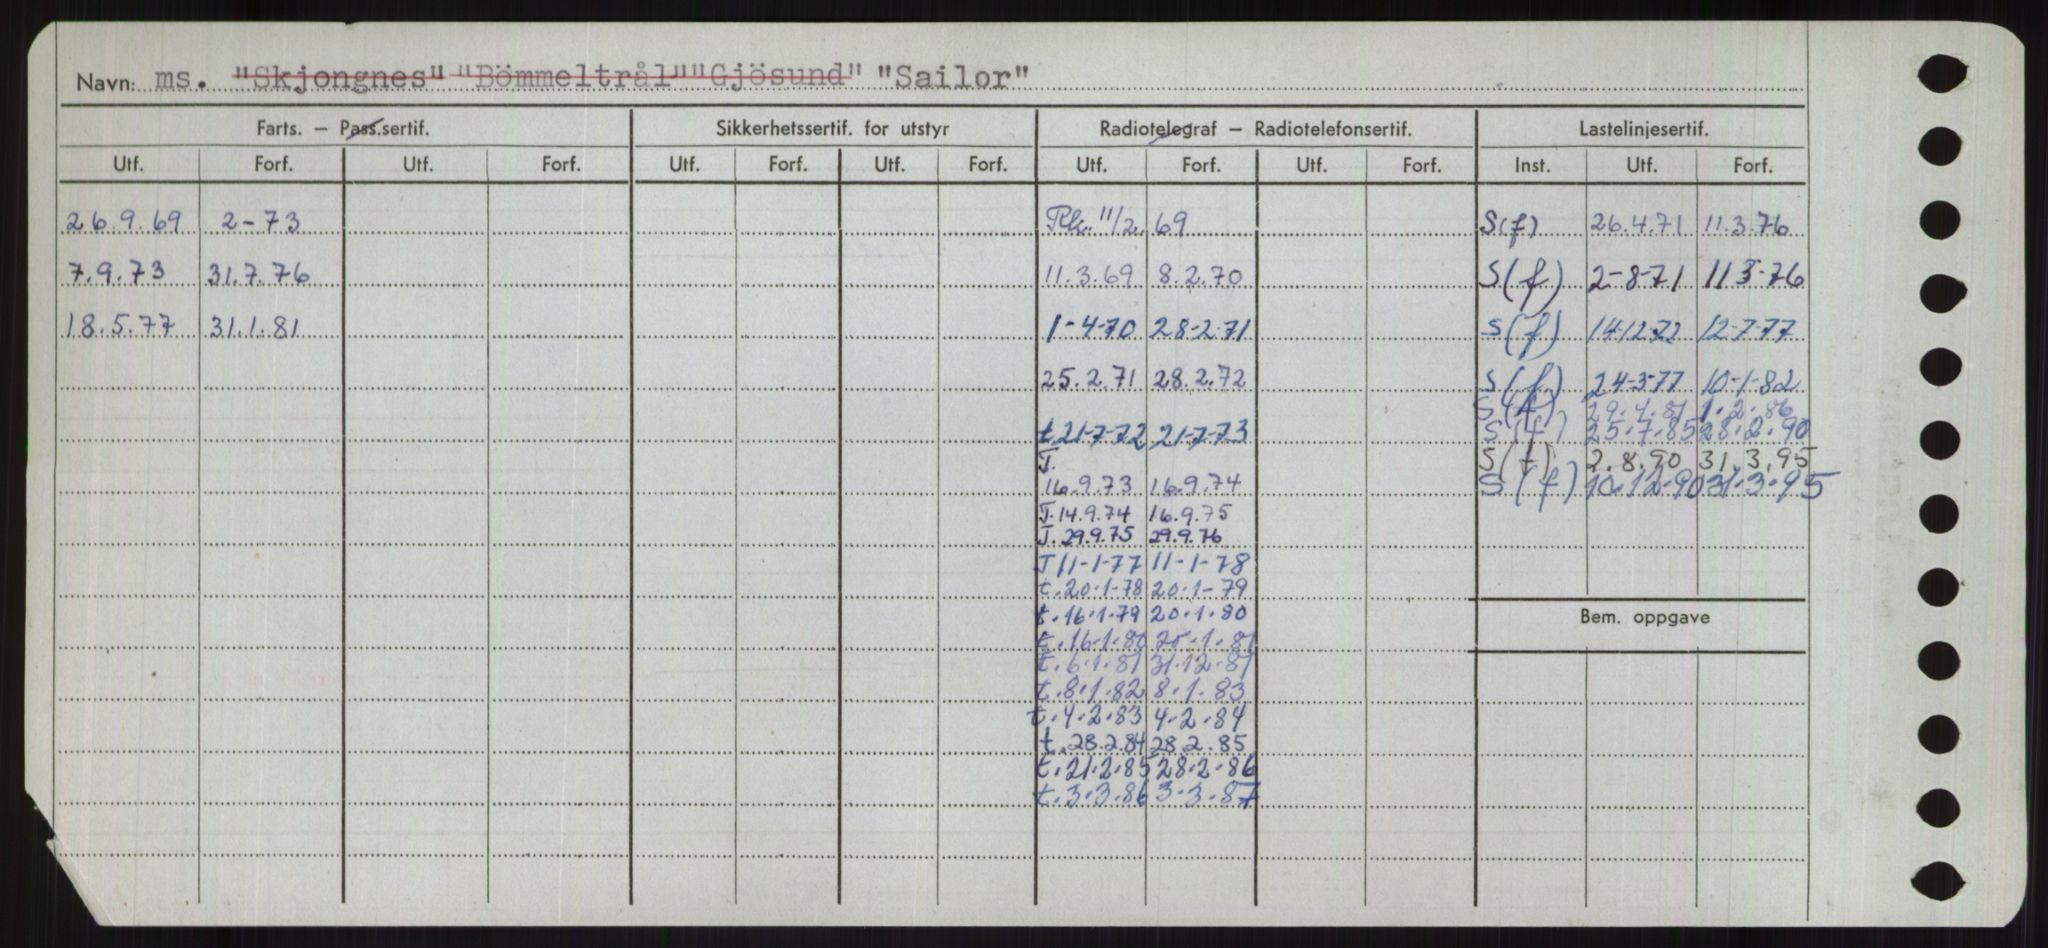 Navn: ms. "Skjongnes" "Bömmeltrål" "Gjösund" "Sailor"
Farts. – Pass.sertif. Sikkerhetssertif. for utstyr Radiotelegraf – Radiotelefonsertif. Lastelinjesertif.
Utf. Forf. Utf. Forf. Utf. Forf. Utf. Forf. Utf. Forf. Utf. Forf. Inst. Utf. Forf.
26.9.69 2-73 11/2 69 S(f) 26.4.71 11.3.76
7.9.73 31.7.76 11.3.69 8.2.70 S(f) 2-8-71 11 3-76
18.5.77 31.1.81 1-4-70 28-2-71 S(f) 14-12-72 12-7-77
25.2.71 28.2.72 S(f) 24-3-77 10-1-82
S(f) 29.4.81 1.2.86
t 21-7-72 21-7-73 S(f) 25.7.85 28.2.90
T. S(f) 2.8.90 31.3.95
16.9.73 16.9.74 S(f) 10.12.90 31.3.95
T. 14.9.74 16.9.75
T. 29.9.75 29.9.76
T 11-1-77 11-1-78
t. 20.1-78 20.1-79
t. 16.1.79 20.1.80
Bem. oppgave
t. 16.1.80 20.1.81
t. 6.1.81 31.12.81
t. 8.1.82 8.1.83
t. 4.2.83 4.2.84
t. 28.2.84 28.2.85
t. 21.2.85 28.2.86
t. 3.3.86 3.3.87